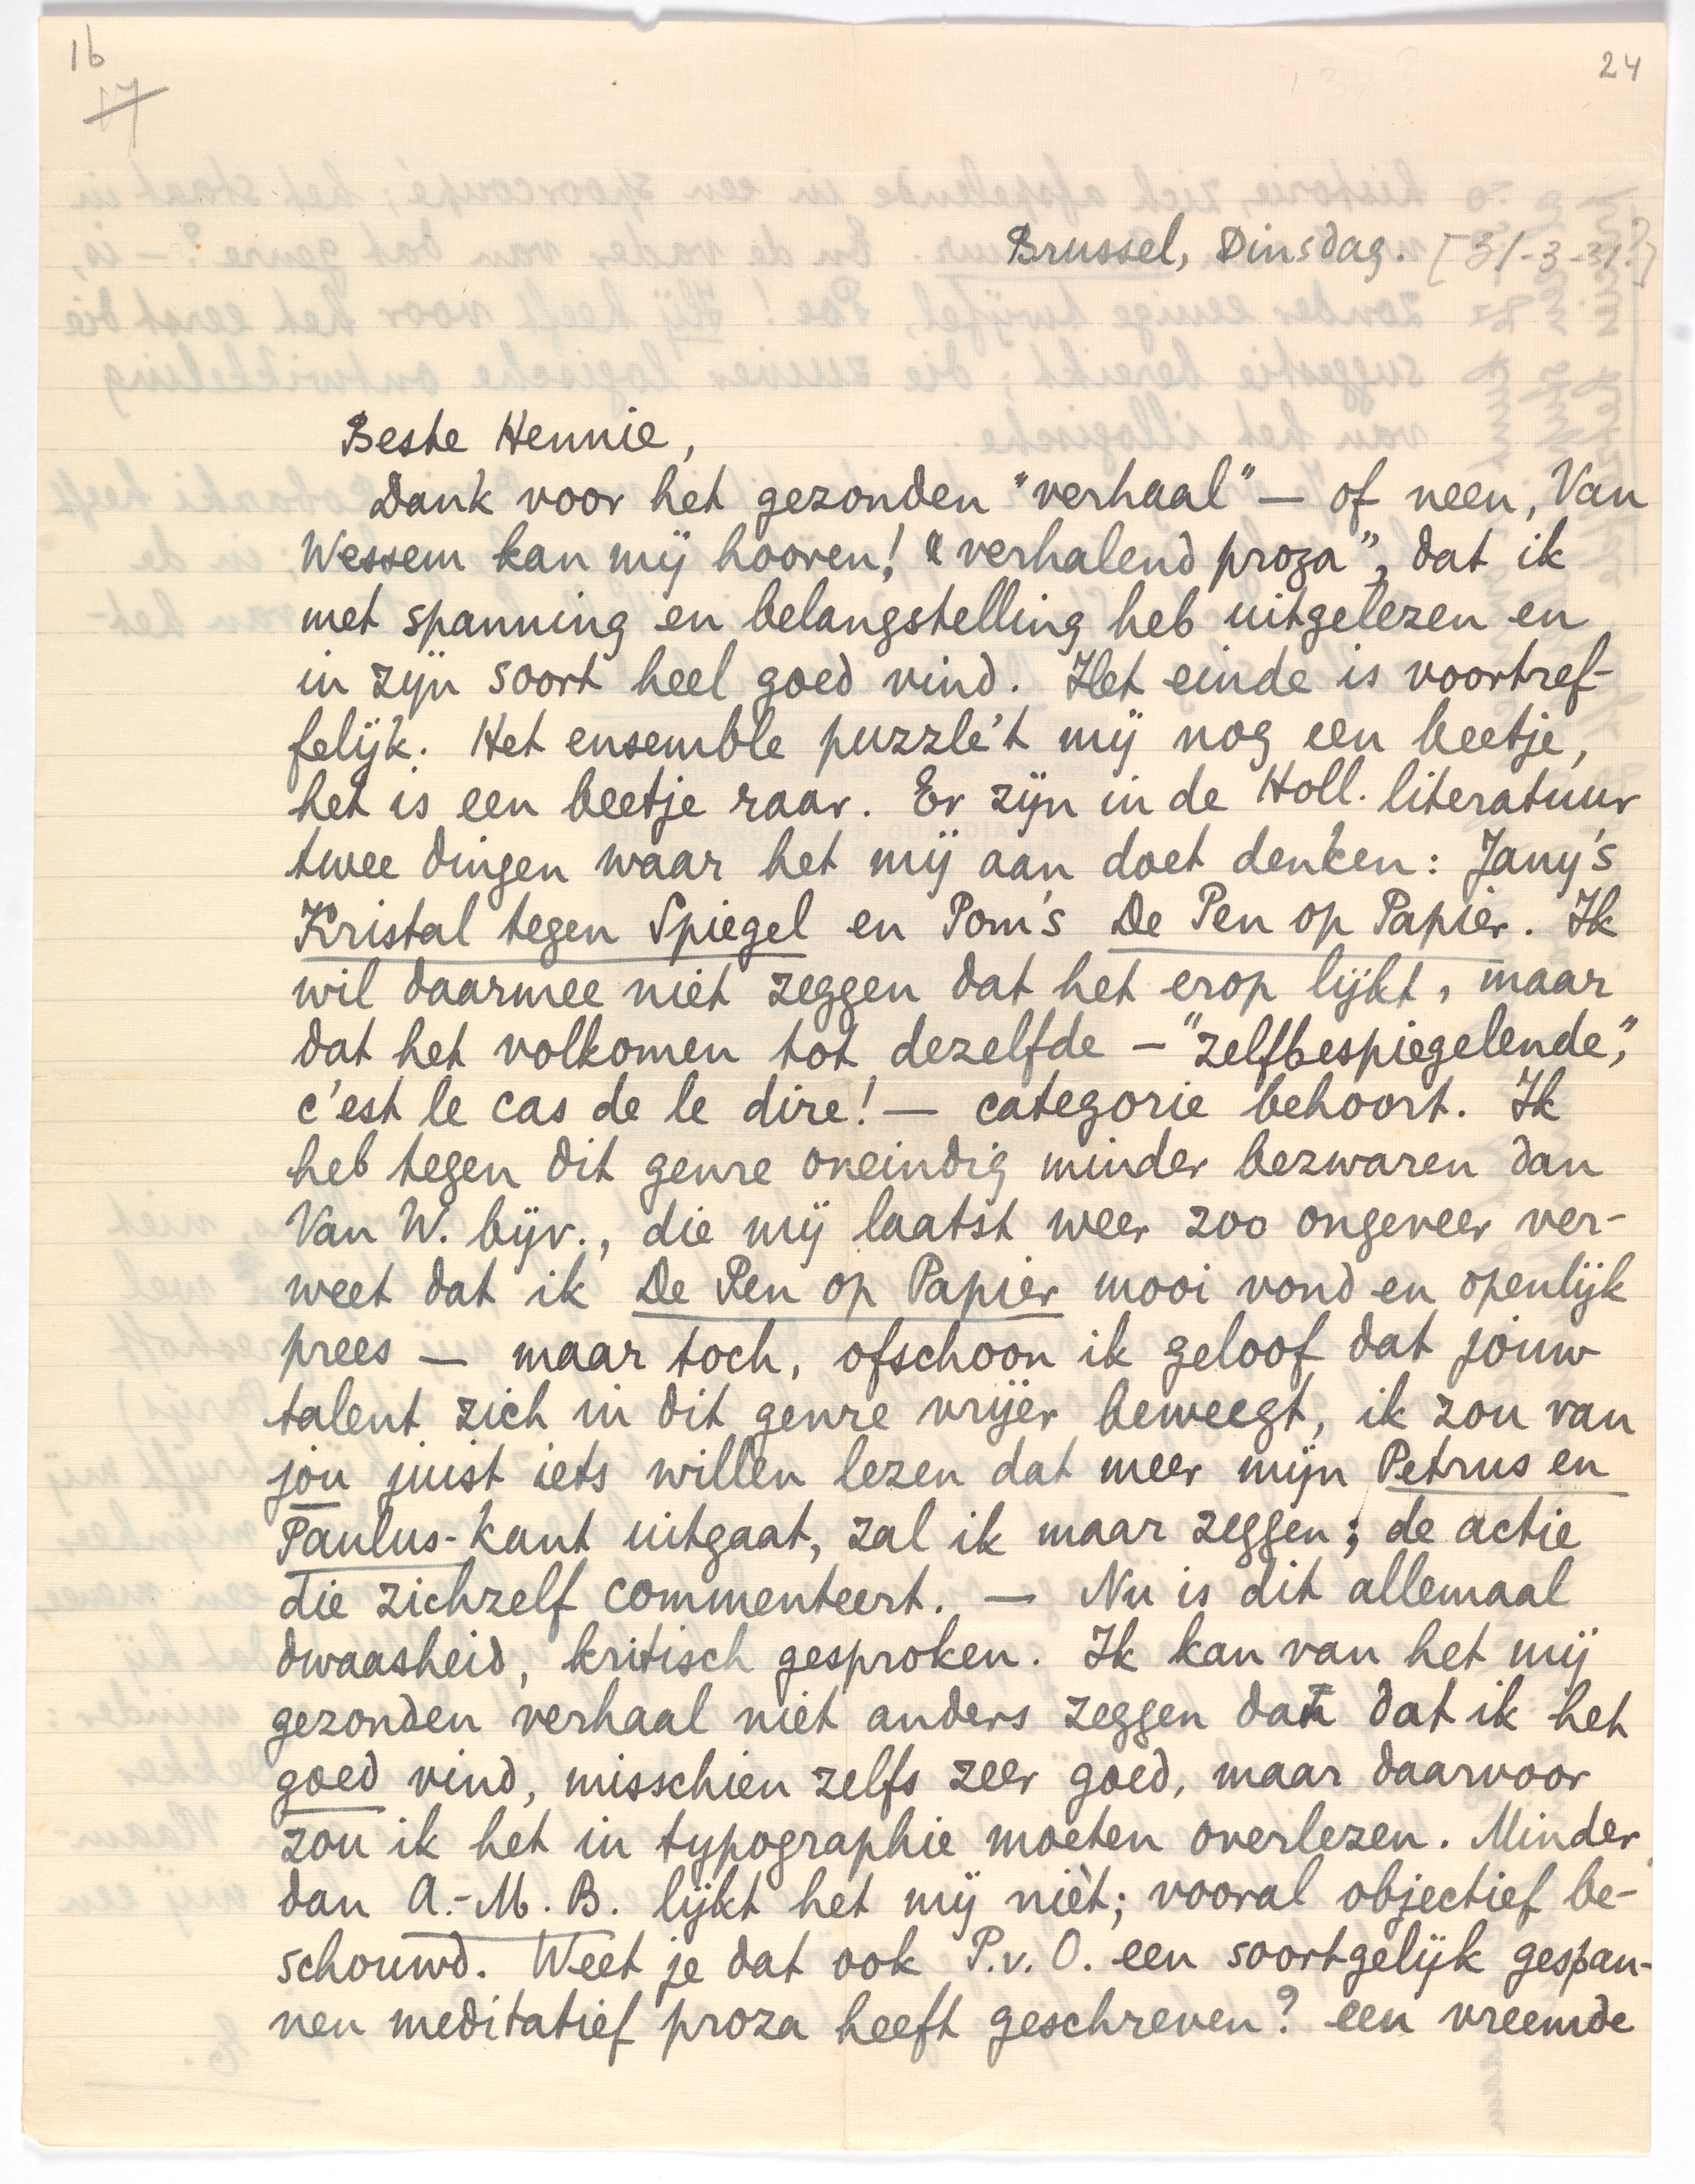 16
17
24
Brussel, Dinsdag. [31-3-31?]
Beste Hennie,
Dank voor het gezonden "verhaal" — of neen, Van
Wessem kan mij hooren! "verhalend proza", dat ik
met spanning en belangstelling heb uitgelezen en
in zijn soort heel goed vind. Het einde is voortref-
felijk. Het ensemble puzzle't mij nog een beetje,
het is een beetje raar. Er zijn in de Holl. literatuur
twee dingen waar het mij aan doet denken: Jany's
Kristal tegen Spiegel en Pom's De Pen op Papier. Ik
wil daarmee niet zeggen dat het erop lijkt, maar
dat het volkomen tot dezelfde — "zelfbespiegelende",
c'est le cas de le dire! — categorie behoort. Ik
heb tegen dit genre oneindig minder bezwaren dan
Van W. bijv., die mij laatst weer zoo ongeveer ver-
weet dat ik De Pen op Papier mooi vond en openlijk
prees — maar toch, ofschoon ik geloof dat jouw
talent zich in dit genre vrijer beweegt, ik zou van
jou juist iets willen lezen dat meer mijn Petrus en
Paulus-kant uitgaat, zal ik maar zeggen; de actie
die zichzelf commenteert. — Nu is dit allemaal
dwaasheid, kritisch gesproken. Ik kan van het mij
gezonden verhaal niet anders zeggen dan dat ik het
goed vind, misschien zelfs zeer goed, maar daarvoor
zou ik het in typographie moeten overlezen. Minder
dan A.-M. B. lijkt het mij niet; vooral objectief be-
schouwd. Weet je dat ook P.v.O. een soortgelijk gespan-
nen meditatief proza heeft geschreven? een vreemde